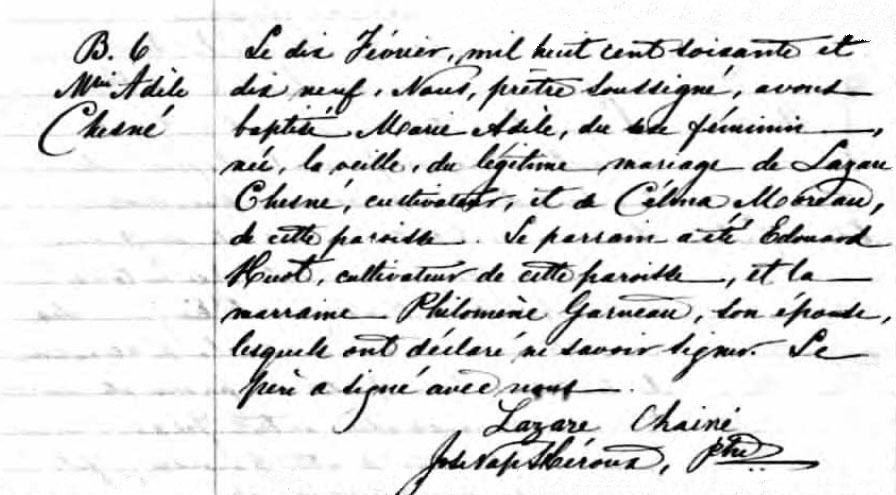 B. 6
Mie Adèle
Chesné
Le dix Février, mil huit cent soixante et
dix neuf, Nous, prêtre soussigné, avons
baptisé Marie Adèle, du sexe féminin,
née, la veille, du légitime mariage de Lazare
Chesné, cultivateur, et de Célina Moreau,
de cette paroisse. Le parrain a été Edouard
Huot, cultivateur de cette paroisse, et la
marraine Philomène Garneau, son épouse,
lesquels ont déclaré ne savoir signer. Le
père a signé avec nous.
Lazare Chainé
Jos Nap Héroux, Ptre